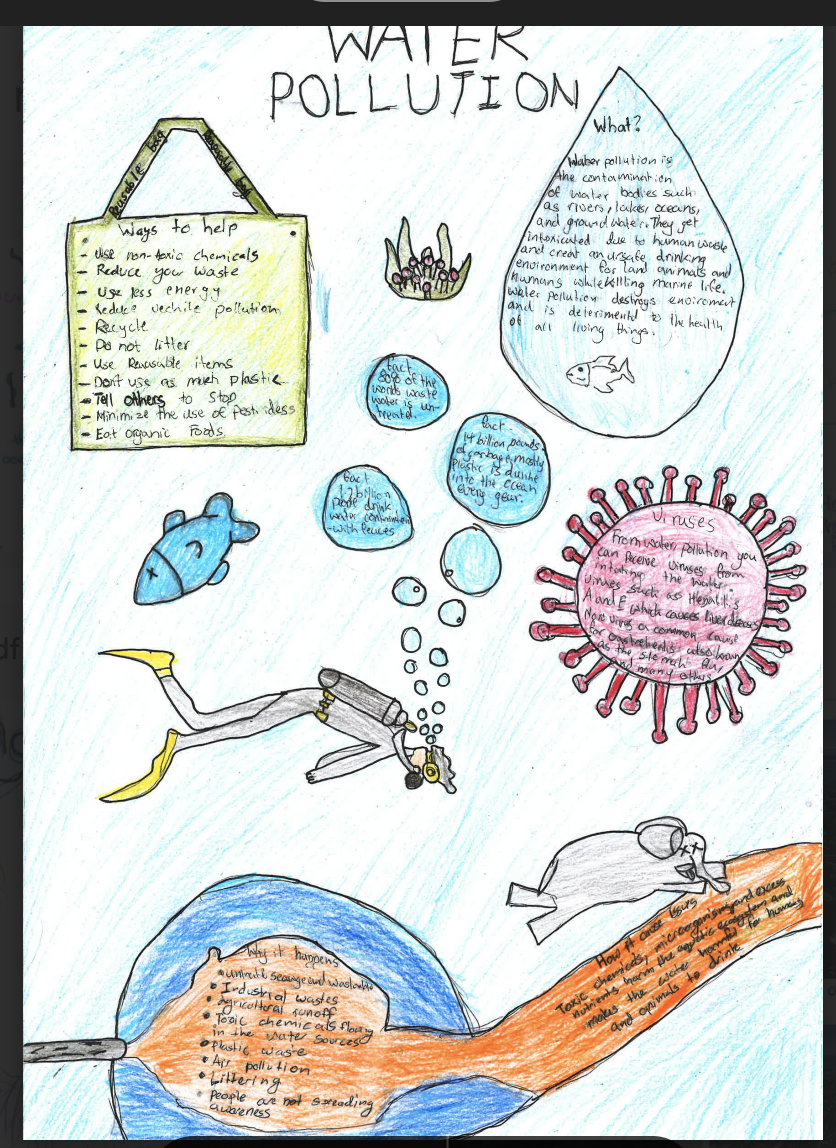 WATER
POLLUTION
What?
Water pollution is
the contamination
of water bodies such
as rivers, lakes, oceans,
and ground water. They get
intoxicated due to human waste
and creat an unsafe drinking
environment for land animals and
humans while killing marine life.
Water pollution destroys enviroment
and is deterimental to the health
of all living things.
Reusable bag
Reusable bag
Ways to help
- Use non-toxic chemicals
- Reduce your waste
- Use less energy
- Reduce vechile pollution
- Recycle
- Do not litter
- Use Reausable items
- Dont use as much plastic
- Tell others to stop
- Minimize the use of pestisidess
- Eat organic Foods
fact
80% of the
worlds waste
water is un-
treated.
fact.
14 billion pounds
of garbage mostly
plastic is
into the ocean
every year.
fact
billion
drink
water
with feaces
Viruses
From water pollution you
can receive viruses from
the water.
Viruses such as Hepatitis
A and E which causes liver diseases
a common cause
for also known
as the stomach flu
and many others
How it cause issues
Toxic chemicals, microorganisms and excess
nutrients harm the aquatic ecosystem and
makes the water harmful for humans
and animals to drink
Why it happens
• untreated and
• Industrial wastes
• Agricultural runoff
• Toxic chemicals flowing
in the water sources
• Plastic waste
• Air pollution
• Littering
• People are not spreading
awareness